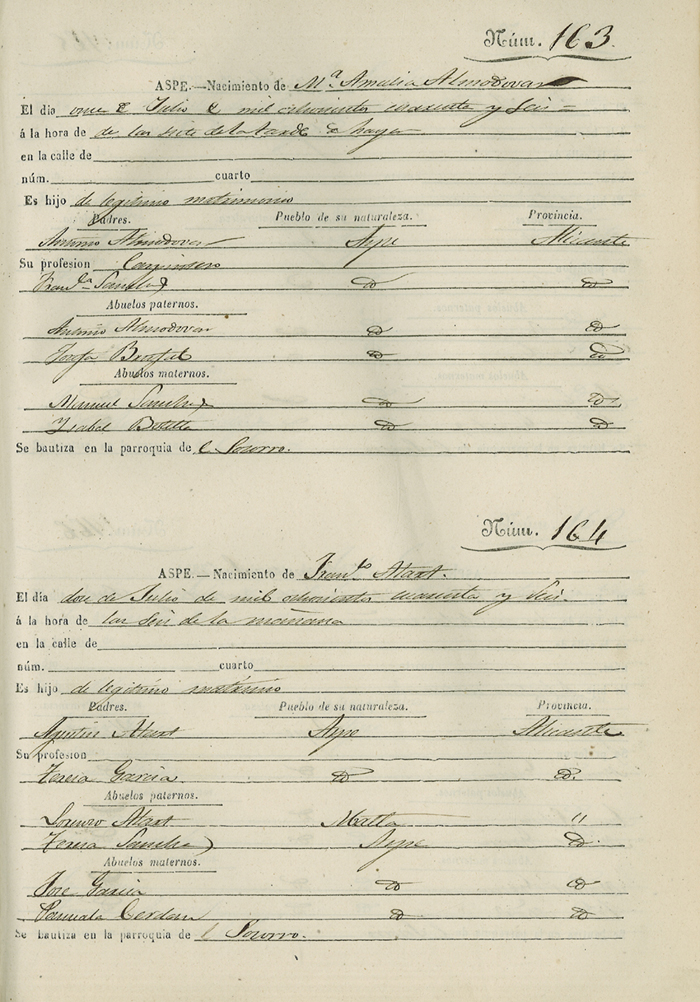 Núm. 163.
ASPE.—Nacimiento de Mª. Amalia Almodovar
El dia once de Julio de mil ochocientos cuarenta y Seis
á la hora de de las siete de la tarde de hayer
en la calle de
núm. cuarto
Es hijo de legitimo matrimonio
Padres. Pueblo de su naturaleza. Provincia.
Antonio Almodovar Aspe Alicante
Su profesion Carpintero
Franca Sanchez do do
Abuelos paternos.
Antonio Almodovar do do
Josefa do do
Abuelos maternos.
Manuel Sanchez do do
Ysabel Botella do do
Se bautiza en la parroquia de el Socorro.
Núm. 164
ASPE.—Nacimiento de Franco Alart.
El dia doce de Julio de mil ochocientos cuarenta y Seis.
á la hora de las seis de la mañana
en la calle de
núm. cuarto
Es hijo de legitimo matrimo
Padres. Pueblo de su naturaleza. Provincia.
Agustin Alart Aspe Alicante
Su profesion
Teresa Garcia do do
Abuelos paternos.
Lorenzo Alart "
Teresa Sanchez Aspe do
Abuelos maternos.
Jose Garcia do do
Pascuala Cerdan do do
Se bautiza en la parroquia de Socorro.